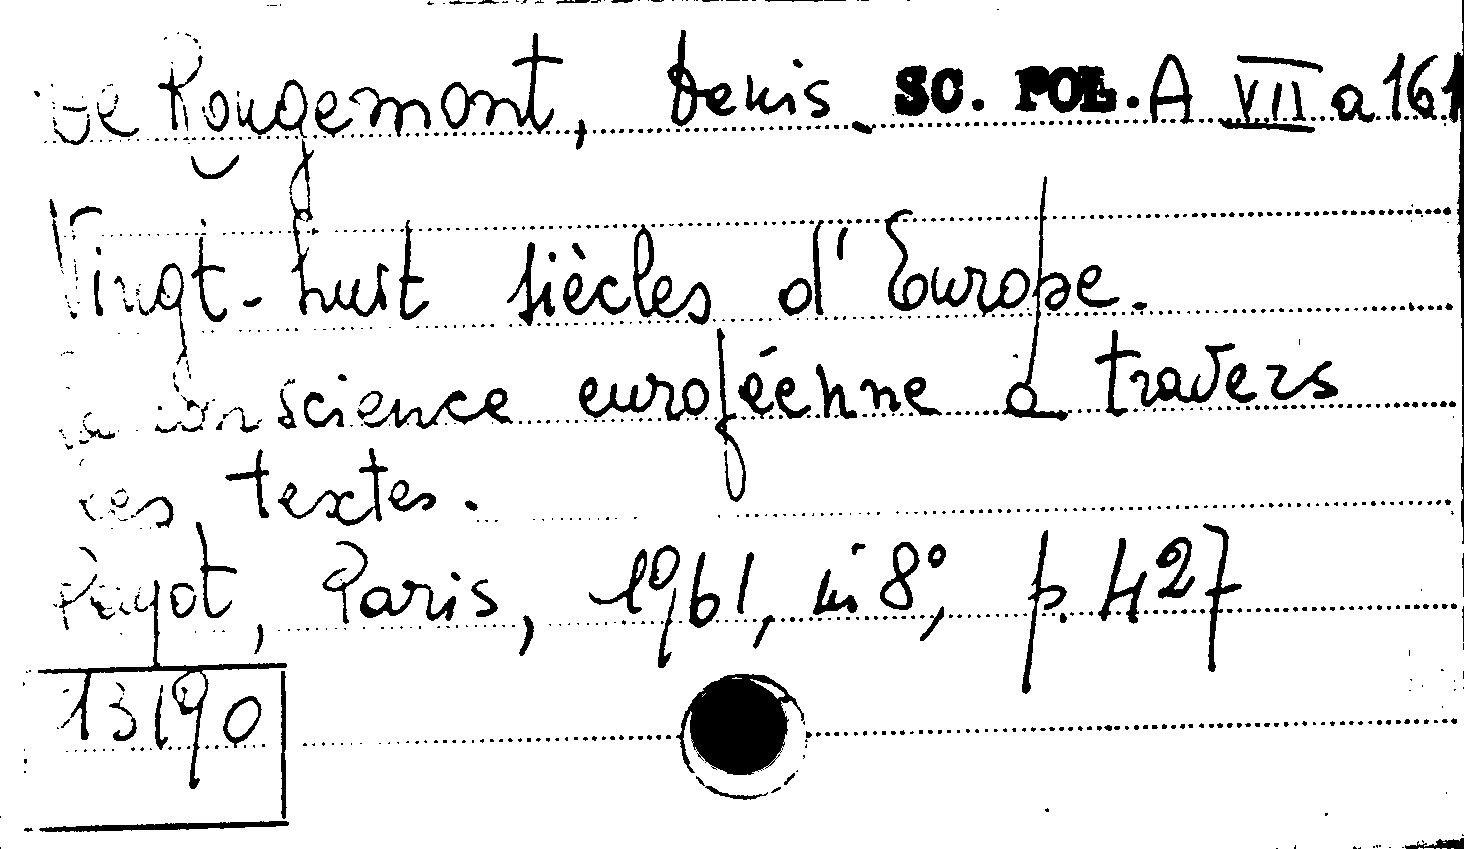 De Rougemont, Denis. SC. POL. A VII a 161
Vingt-huit siècles d'Europe.
La conscience européenne à travers
les textes.
Payot, Paris, 1961, in 8°, p. 427
13190